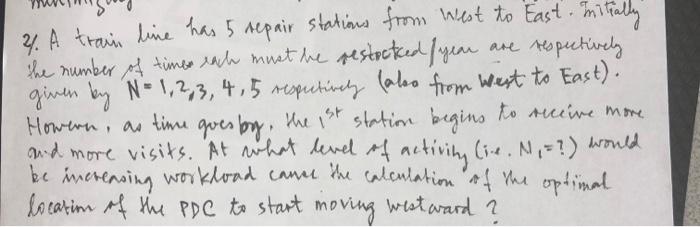 2/. A train line has 5 repair stations from West to East. Initially
the number of times each must be restocked/year are respectively
given by N = 1, 2, 3, 4, 5 respectively (also from West to East).
However, as time goes by, the 1st station begins to receive more
and more visits. At what level of activity (i.e. N₁=?) would
be increasing workload cause the calculation of the optimal
location of the PDC to start moving westward?